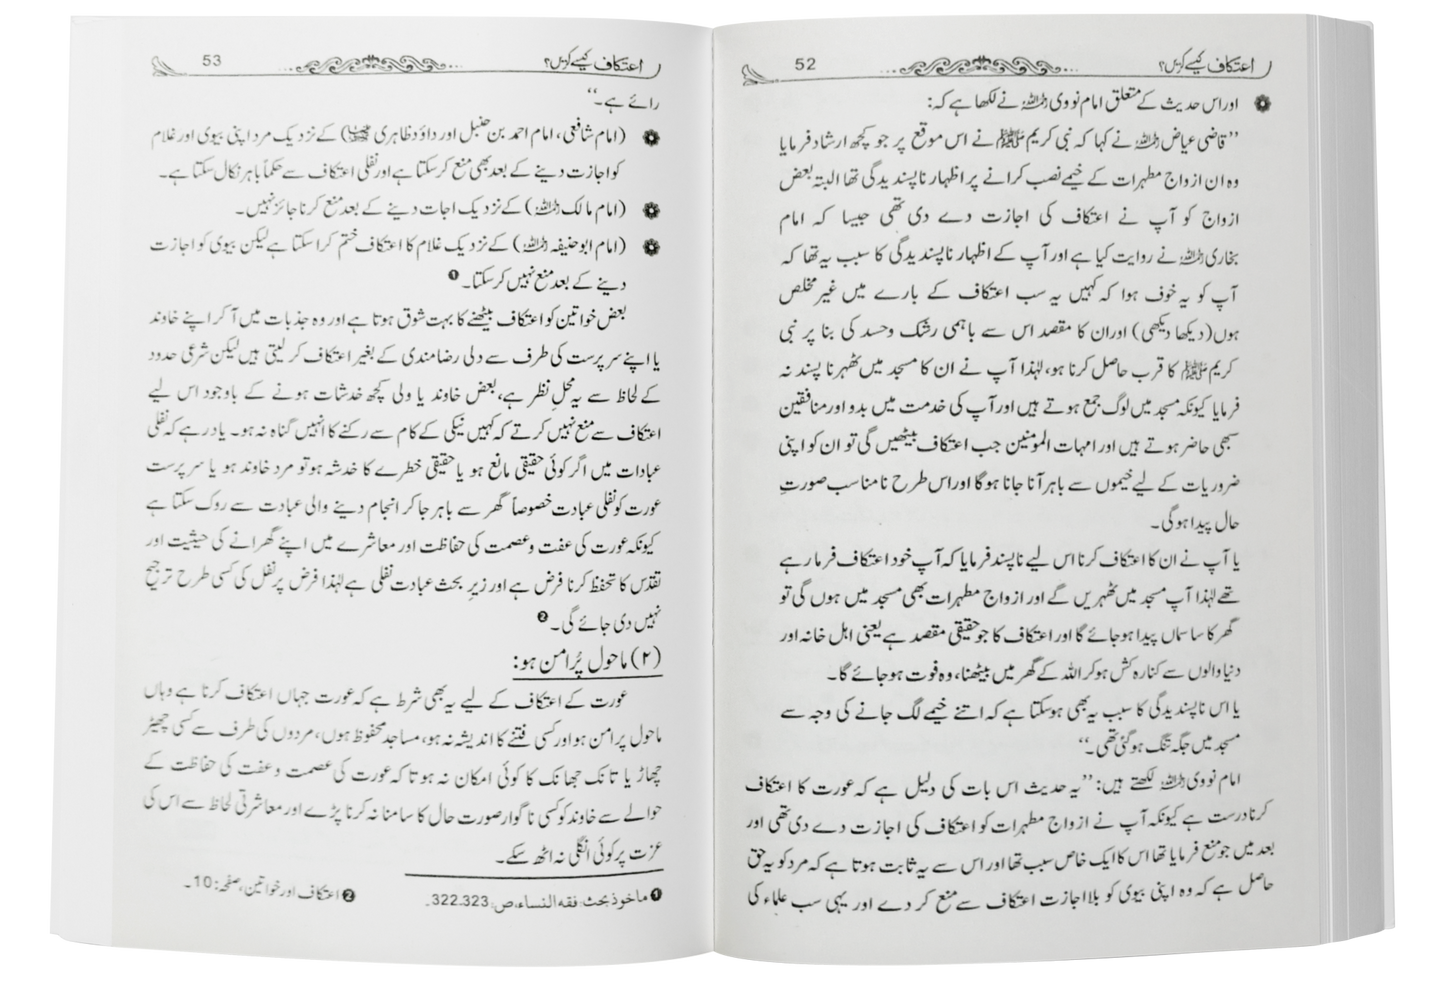 اعتکاف کیسے کریں؟ 52
اور اس حدیث کے متعلق امام نووی رحمہ اللہ نے لکھا ہے کہ:
’’قاضی عیاض رحمہ اللہ نے کہا کہ نبی کریم ﷺ نے اس موقع پر جو کچھ ارشاد فرمایا
وہ ان ازواج مطہرات کے خیمے نصب کرانے پر اظہار ناپسندیدگی تھا البتہ بعض
ازواج کو آپ نے اعتکاف کی اجازت دے دی تھی جیسا کہ امام
بخاری رحمہ اللہ نے روایت کیا ہے اور آپ کے اظہار ناپسندیدگی کا سبب یہ تھا کہ
آپ کو یہ خوف ہوا کہ کہیں یہ سب اعتکاف کے بارے میں غیر مخلص
ہوں (دیکھا دیکھی) اور ان کا مقصد اس سے باہمی رشک وحسد کی بنا پر نبی
کریم ﷺ کا قرب حاصل کرنا ہو، لہٰذا آپ نے ان کا مسجد میں ٹھہرنا پسند نہ
فرمایا کیونکہ مسجد میں لوگ جمع ہوتے ہیں اور آپ کی خدمت میں بدو اور منافقین
سبھی حاضر ہوتے ہیں اور امہات المومنین جب اعتکاف بیٹھیں گی تو ان کو اپنی
ضروریات کے لیے خیموں سے باہر آنا جانا ہوگا اور اس طرح نامناسب صورتِ
حال پیدا ہوگی۔
یا آپ نے ان کا اعتکاف کرنا اس لیے ناپسند فرمایا کہ آپ خود اعتکاف فرما رہے
تھے لہٰذا آپ مسجد میں ٹھہریں گے اور ازواج مطہرات بھی مسجد میں ہوں گی تو
گھر کا سا سماں پیدا ہو جائے گا اور اعتکاف کا جو حقیقی مقصد ہے یعنی اہل خانہ اور
دنیا والوں سے کنارہ کش ہو کر اللہ کے گھر میں بیٹھنا، وہ فوت ہو جائے گا۔
یا اس ناپسندیدگی کا سبب یہ بھی ہوسکتا ہے کہ اتنے خیمے لگ جانے کی وجہ سے
مسجد میں جگہ تنگ ہوگئی تھی۔‘‘
امام نووی رحمہ اللہ لکھتے ہیں: ’’یہ حدیث اس بات کی دلیل ہے کہ عورت کا اعتکاف
کرنا درست ہے کیونکہ آپ نے ازواج مطہرات کو اعتکاف کی اجازت دے دی تھی اور
بعد میں جو منع فرمایا تھا اس کا ایک خاص سبب تھا اور اس سے یہ ثابت ہوتا ہے کہ مرد کو یہ حق
حاصل ہے کہ وہ اپنی بیوی کو بلا اجازت اعتکاف سے منع کر دے اور یہی سب علماء کی
اعتکاف کیسے کریں؟ 53
رائے ہے۔‘‘
(امام شافعی، امام احمد بن حنبل اور داؤد ظاہری رحمہم اللہ) کے نزدیک مرد اپنی بیوی اور غلام
کو اجازت دینے کے بعد بھی منع کرسکتا ہے اور نفلی اعتکاف سے حکماً باہر نکال سکتا ہے۔
(امام مالک رحمہ اللہ) کے نزدیک اجات دینے کے بعد منع کرنا جائز نہیں۔
(امام ابوحنیفہ رحمہ اللہ) کے نزدیک غلام کا اعتکاف ختم کرا سکتا ہے لیکن بیوی کو اجازت
دینے کے بعد منع نہیں کرسکتا۔ ❶
بعض خواتین کو اعتکاف بیٹھنے کا بہت شوق ہوتا ہے اور وہ جذبات میں آ کر اپنے خاوند
یا اپنے سرپرست کی طرف سے دلی رضامندی کے بغیر اعتکاف کر لیتی ہیں لیکن شرعی حدود
کے لحاظ سے یہ محلِ نظر ہے، بعض خاوند یا ولی کچھ خدشات ہونے کے باوجود اس لیے
اعتکاف سے منع نہیں کرتے کہ کہیں نیکی کے کام سے رکنے کا انہیں گناہ نہ ہو۔ یاد رہے کہ نفلی
عبادات میں اگر کوئی حقیقی مانع ہو یا حقیقی خطرے کا خدشہ ہو تو مرد خاوند ہو یا سرپرست
عورت کو نفلی عبادت خصوصاً گھر سے باہر جا کر انجام دینے والی عبادت سے روک سکتا ہے
کیونکہ عورت کی عفت وعصمت کی حفاظت اور معاشرے میں اپنے گھرانے کی حیثیت اور
تقدّس کا تحفظ کرنا فرض ہے اور زیرِ بحث عبادت نفلی ہے لہٰذا فرض پر نفل کی کسی طرح ترجیح
نہیں دی جائے گی۔ ❷
(۲) ماحول پُرامن ہو:
عورت کے اعتکاف کے لیے یہ بھی شرط ہے کہ عورت جہاں اعتکاف کرنا ہے وہاں
ماحول پرامن ہو اور کسی فتنے کا اندیشہ نہ ہو، مساجد محفوظ ہوں، مردوں کی طرف سے کسی چھیڑ
چھاڑ یا تانک جھانک کا کوئی امکان نہ ہو تا کہ عورت کی عصمت وعفت کی حفاظت کے
حوالے سے خاوند کو کسی ناگوار صورت حال کا سامنا نہ کرنا پڑے اور معاشرتی لحاظ سے اس کی
عزت پر کوئی انگلی نہ اٹھ سکے۔
❶ ماخوذ بحث: فقہ النساء، ص: 322.323۔ ❷ اعتکاف اور خواتین، صفحہ: 10۔